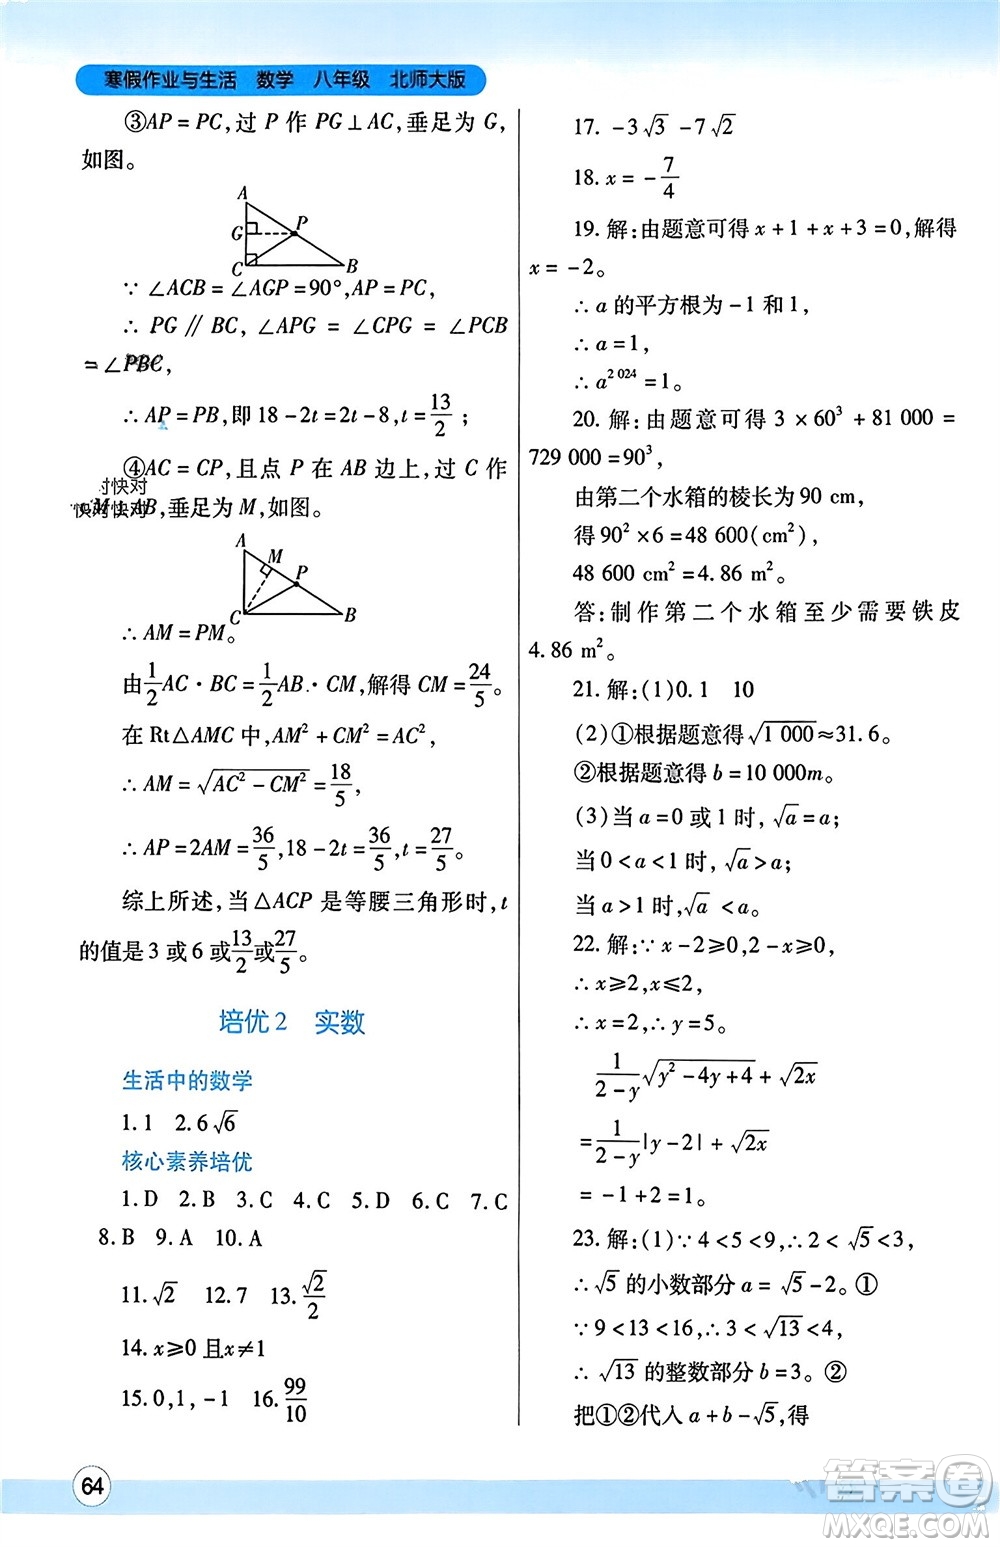 寒假作业与生活 数学 八年级 北师大版
③AP=PC,过 P 作 PG⊥AC,垂足为 G,
如图。
A
G
P
C
B
∵ ∠ACB=∠AGP=90°,AP=PC,
∴ PG∥BC,∠APG=∠CPG=∠PCB
=∠PBC,
∴ AP=PB,即 18-2t=2t-8,t=13/2;
④AC=CP,且点 P 在 AB 边上,过 C 作
CM⊥AB,垂足为 M,如图。
A
M
P
C
B
∴ AM=PM。
由1/2AC·BC=1/2AB·CM,解得 CM=24/5。
在 Rt△AMC 中,AM²+CM²=AC²,
∴ AM=√(AC²-CM²)=18/5,
∴ AP=2AM=36/5,18-2t=36/5,t=27/5。
综上所述,当△ACP 是等腰三角形时,t
的值是 3 或 6 或13/2或27/5。
培优2 实数
生活中的数学
1.1 2.6√6
核心素养培优
1.D 2.B 3.C 4.C 5.D 6.C 7.C
8.B 9.A 10.A
11.√2 12.7 13.√2/2
14.x≥0 且x≠1
15.0,1,-1 16.99/10
17.-3√3 -7√2
18.x=-7/4
19.解:由题意可得 x+1+x+3=0,解得
x=-2。
∴ a 的平方根为-1 和 1,
∴ a=1,
∴ a^2 024=1。
20.解:由题意可得 3×60³+81 000=
729 000=90³,
由第二个水箱的棱长为 90 cm,
得 90²×6=48 600(cm²),
48 600 cm²=4.86 m²。
答:制作第二个水箱至少需要铁皮
4.86 m²。
21.解:(1)0.1 10
(2)①根据题意得√1 000≈31.6。
②根据题意得 b=10 000m。
(3)当 a=0 或 1 时,√a=a;
当 0<a<1 时,√a>a;
当 a>1 时,√a<a。
22.解:∵ x-2≥0,2-x≥0,
∴ x≥2,x≤2,
∴ x=2,∴ y=5。
1/(2-y)√(y²-4y+4)+√2x
=1/(2-y)|y-2|+√2x
=-1+2=1。
23.解:(1)∵ 4<5<9,∴ 2<√5<3,
∴ √5 的小数部分 a=√5-2。①
∵ 9<13<16,∴ 3<√13<4,
∴ √13 的整数部分 b=3。②
把①②代入 a+b-√5,得
64
答案圈
MXQE.COM